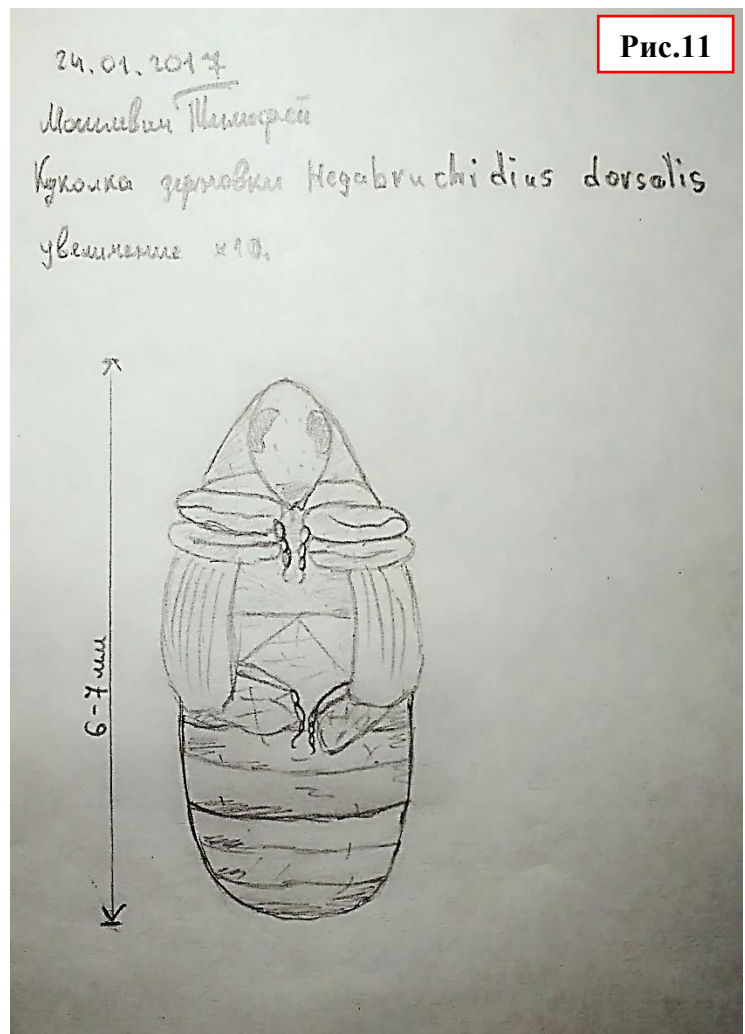 Рис.11
24.01.2017
Тимофей
Куколка зерновки Megabruchidius dorsalis
увеличение ×10.
6-7 мм